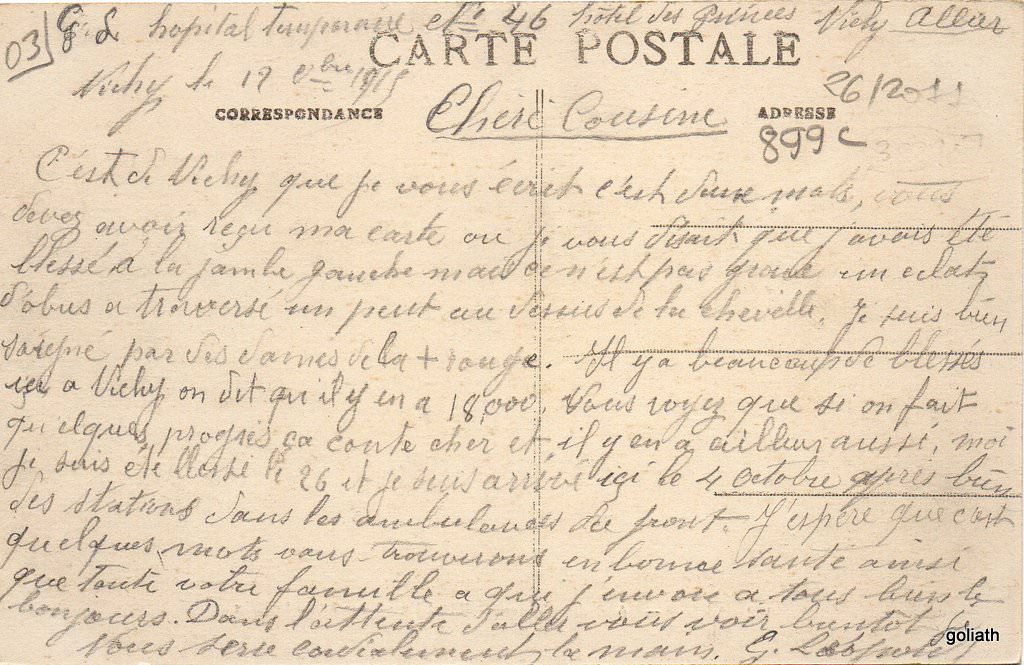 03 G. L hopital temporaire No 46 hôtel des Princes Vichy Allier
CARTE POSTALE
Vichy le 17 8bre 1915
26/2011
CORRESPONDANCE
Chère Cousine
ADRESSE
899c
C'est de Vichy que je vous écrit c'est deux mots, vous
devez avoir reçu ma carte ou je vous disait que j'avais été
blessé a la jambe gauche mais ce n'est pas grave un eclat
d'obus a traversé un peut au dessus de la cheville. Je suis bien
soigné par des dames de la + rouge. Il y a beaucoup de blessés
ici a Vichy on dit qu'il y en a 18,000. Vous voyez que si on fait
quelques progrès ca coute cher et il y en a ailleur aussi, moi
je suis été blessé le 26 et je suis arrivé ici le 4 Octobre apres bien
des stations dans les ambulances du front. J'espère que c'est
quelques mots vous trouverons en bonne santé ainsi
que toute votre famille a que j'envoie a tous bien le
bonjours. Dans l'attente d'aller vous voir bientot je
vous serre cordialement la main. G.
goliath